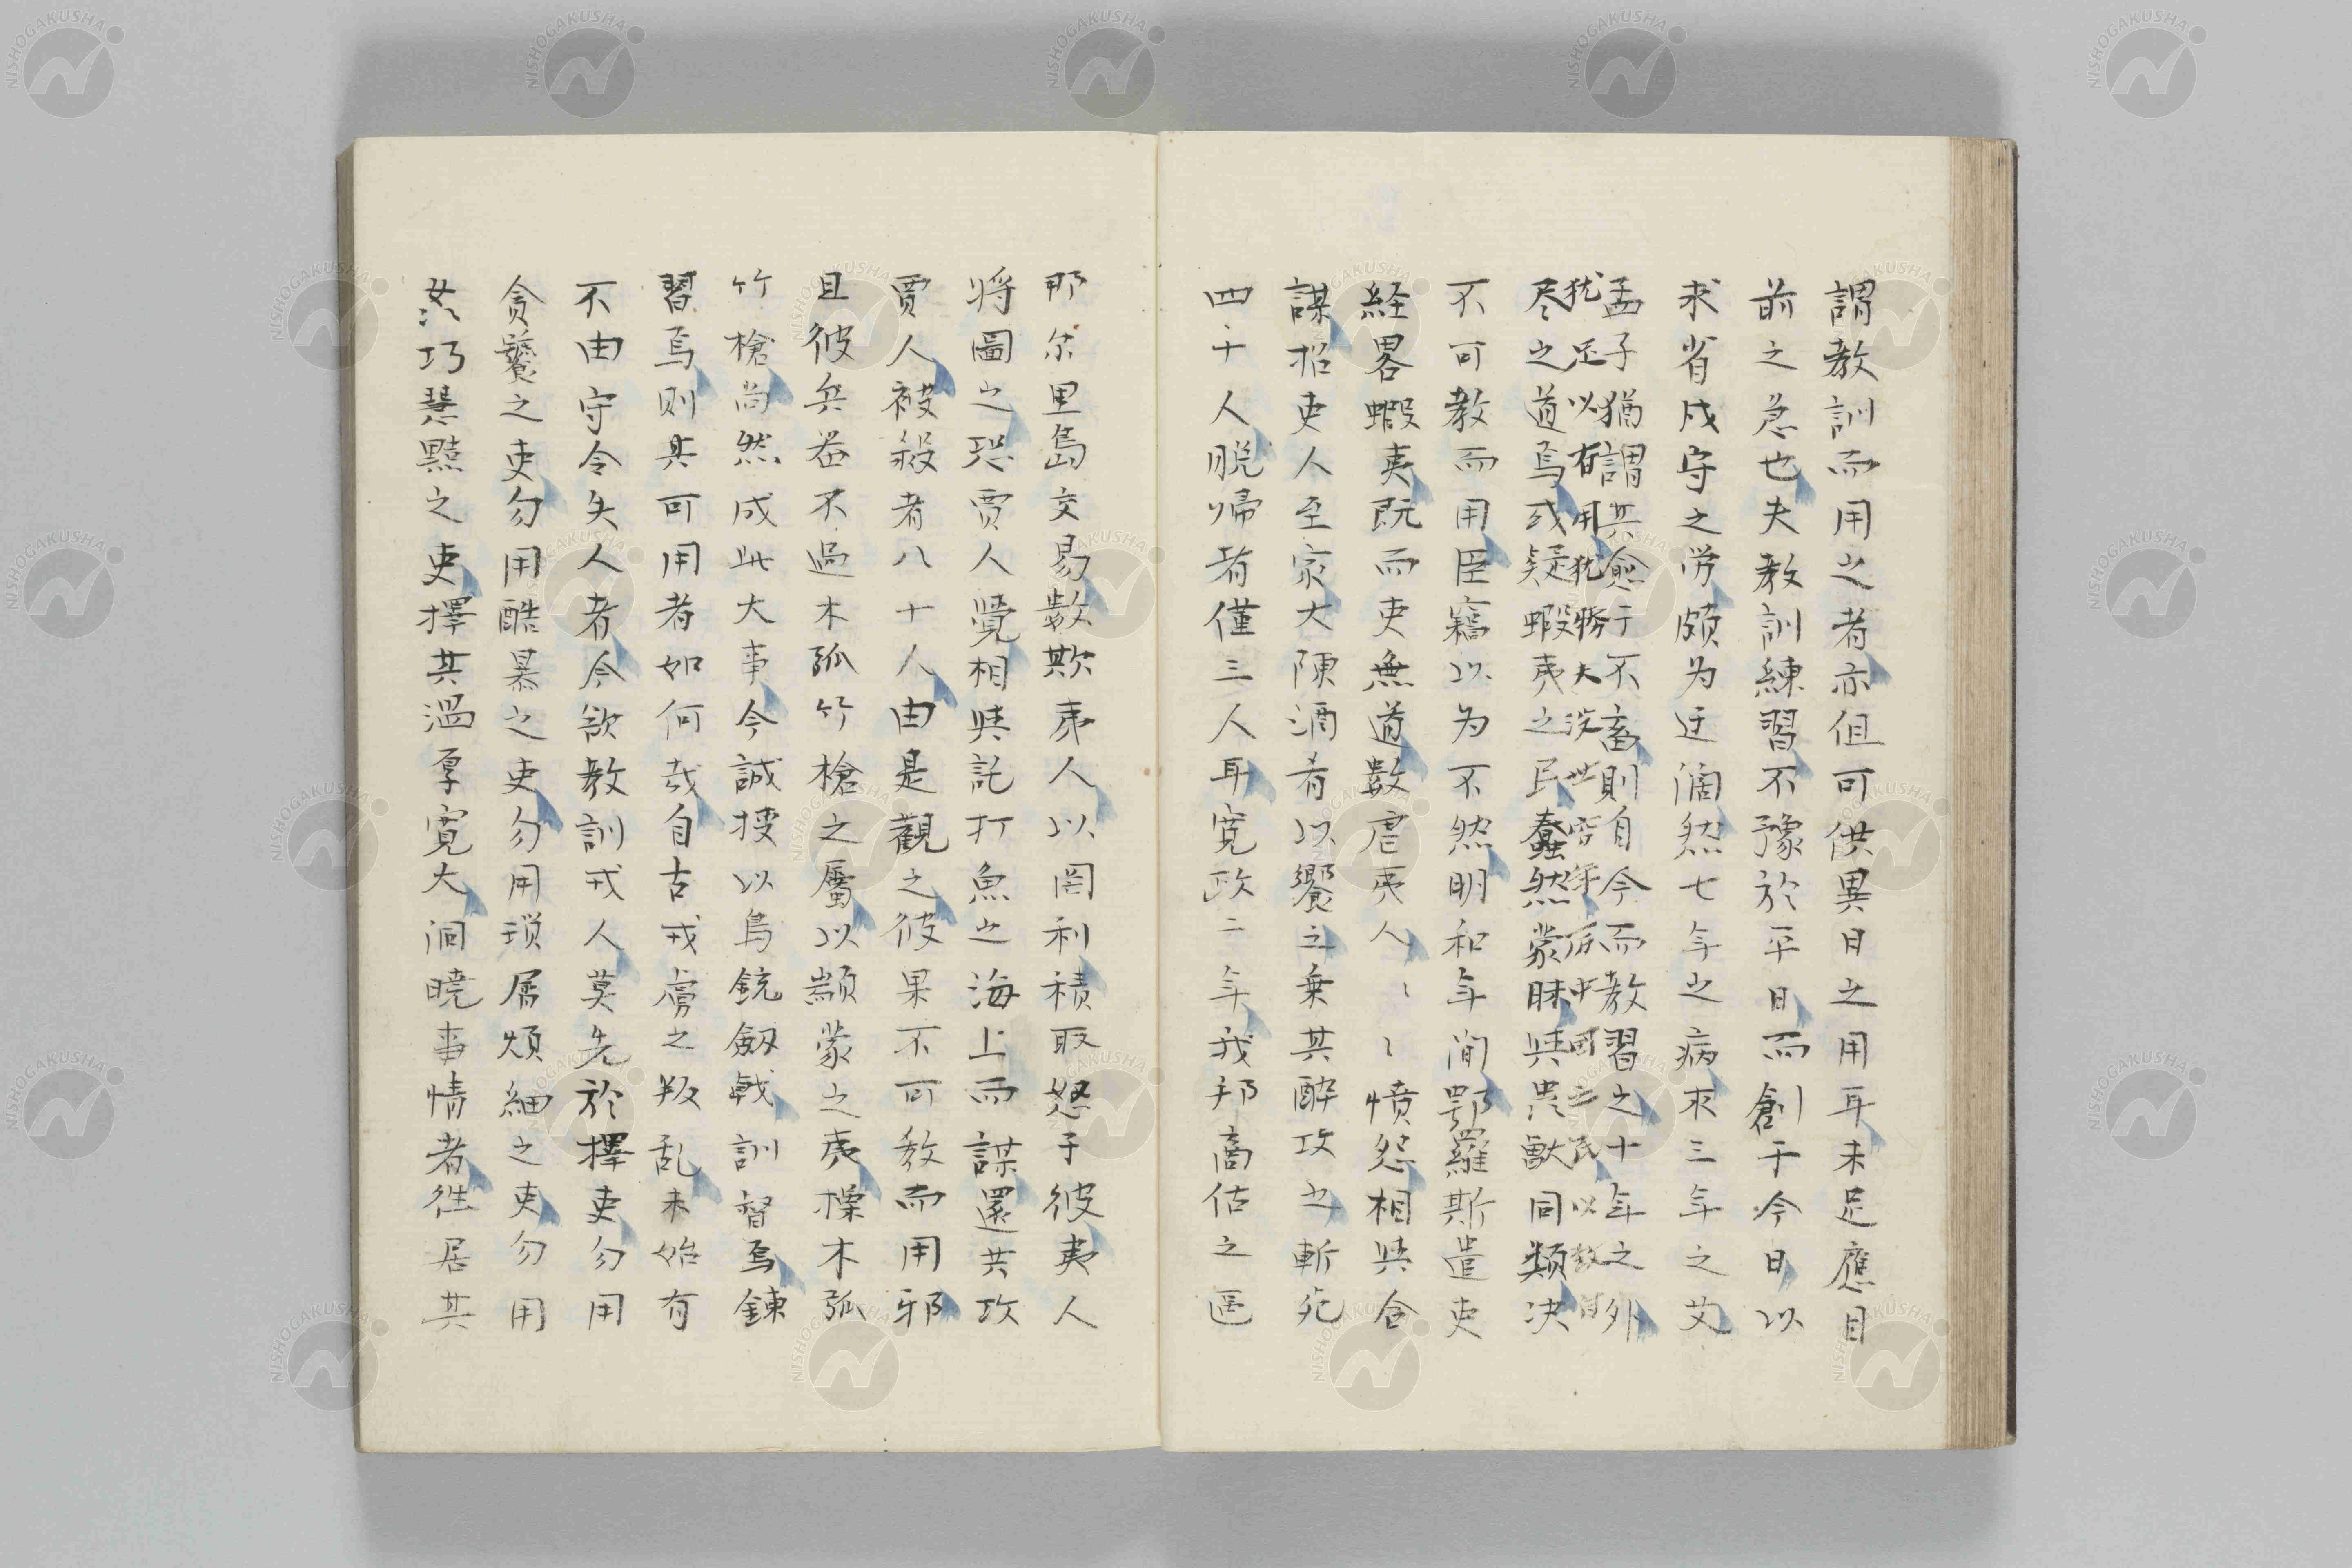 謂教訓而用之者亦但可供異日之用耳未足應目
前之急也夫教訓練習不豫於平日而創于今日以
求省戍守之労頗为迂濶然七年之病求三年之艾
孟子猶謂其愈于不畜則自今而教習之十年之外
犹足以有用犹勝大没世窮年而中国之民以教
尽之道焉或疑蝦夷之民蠢然蒙昧與畏獣同類决
不可教而用臣竊以为不然明和年间鄂羅斯遣吏
経畧蝦夷既而吏無道数虐夷人〻〻憤怨相與合
謀招吏人至家大陳酒肴以饗之乗其酔攻之斬死
四十人脱帰者僅三人耳寛政二年我邦商估之
那尔里島交易数欺夷人以罔利積取怒于彼夷人
将圖之恐賈人覺相與託打魚之海上而謀還共攻
賈人被殺者八十人由是觀之彼果不可教而用邪
且彼兵器不過木弧竹槍之屬以顓蒙之夷操木弧
竹槍尚然成此大事今誠授以鳥銃劔戟訓督焉錬
習焉则其可用者如何哉自古戎虜之叛乱未始有
不由守令失人者今欲教訓戎人莫先於擇吏勿用
貪饕之吏勿用酷暴之吏勿用瑣屑煩細之吏勿用
巧慧黠之吏擇其温厚寛大洞曉事情者徃居其
NISHOGAKUSHA